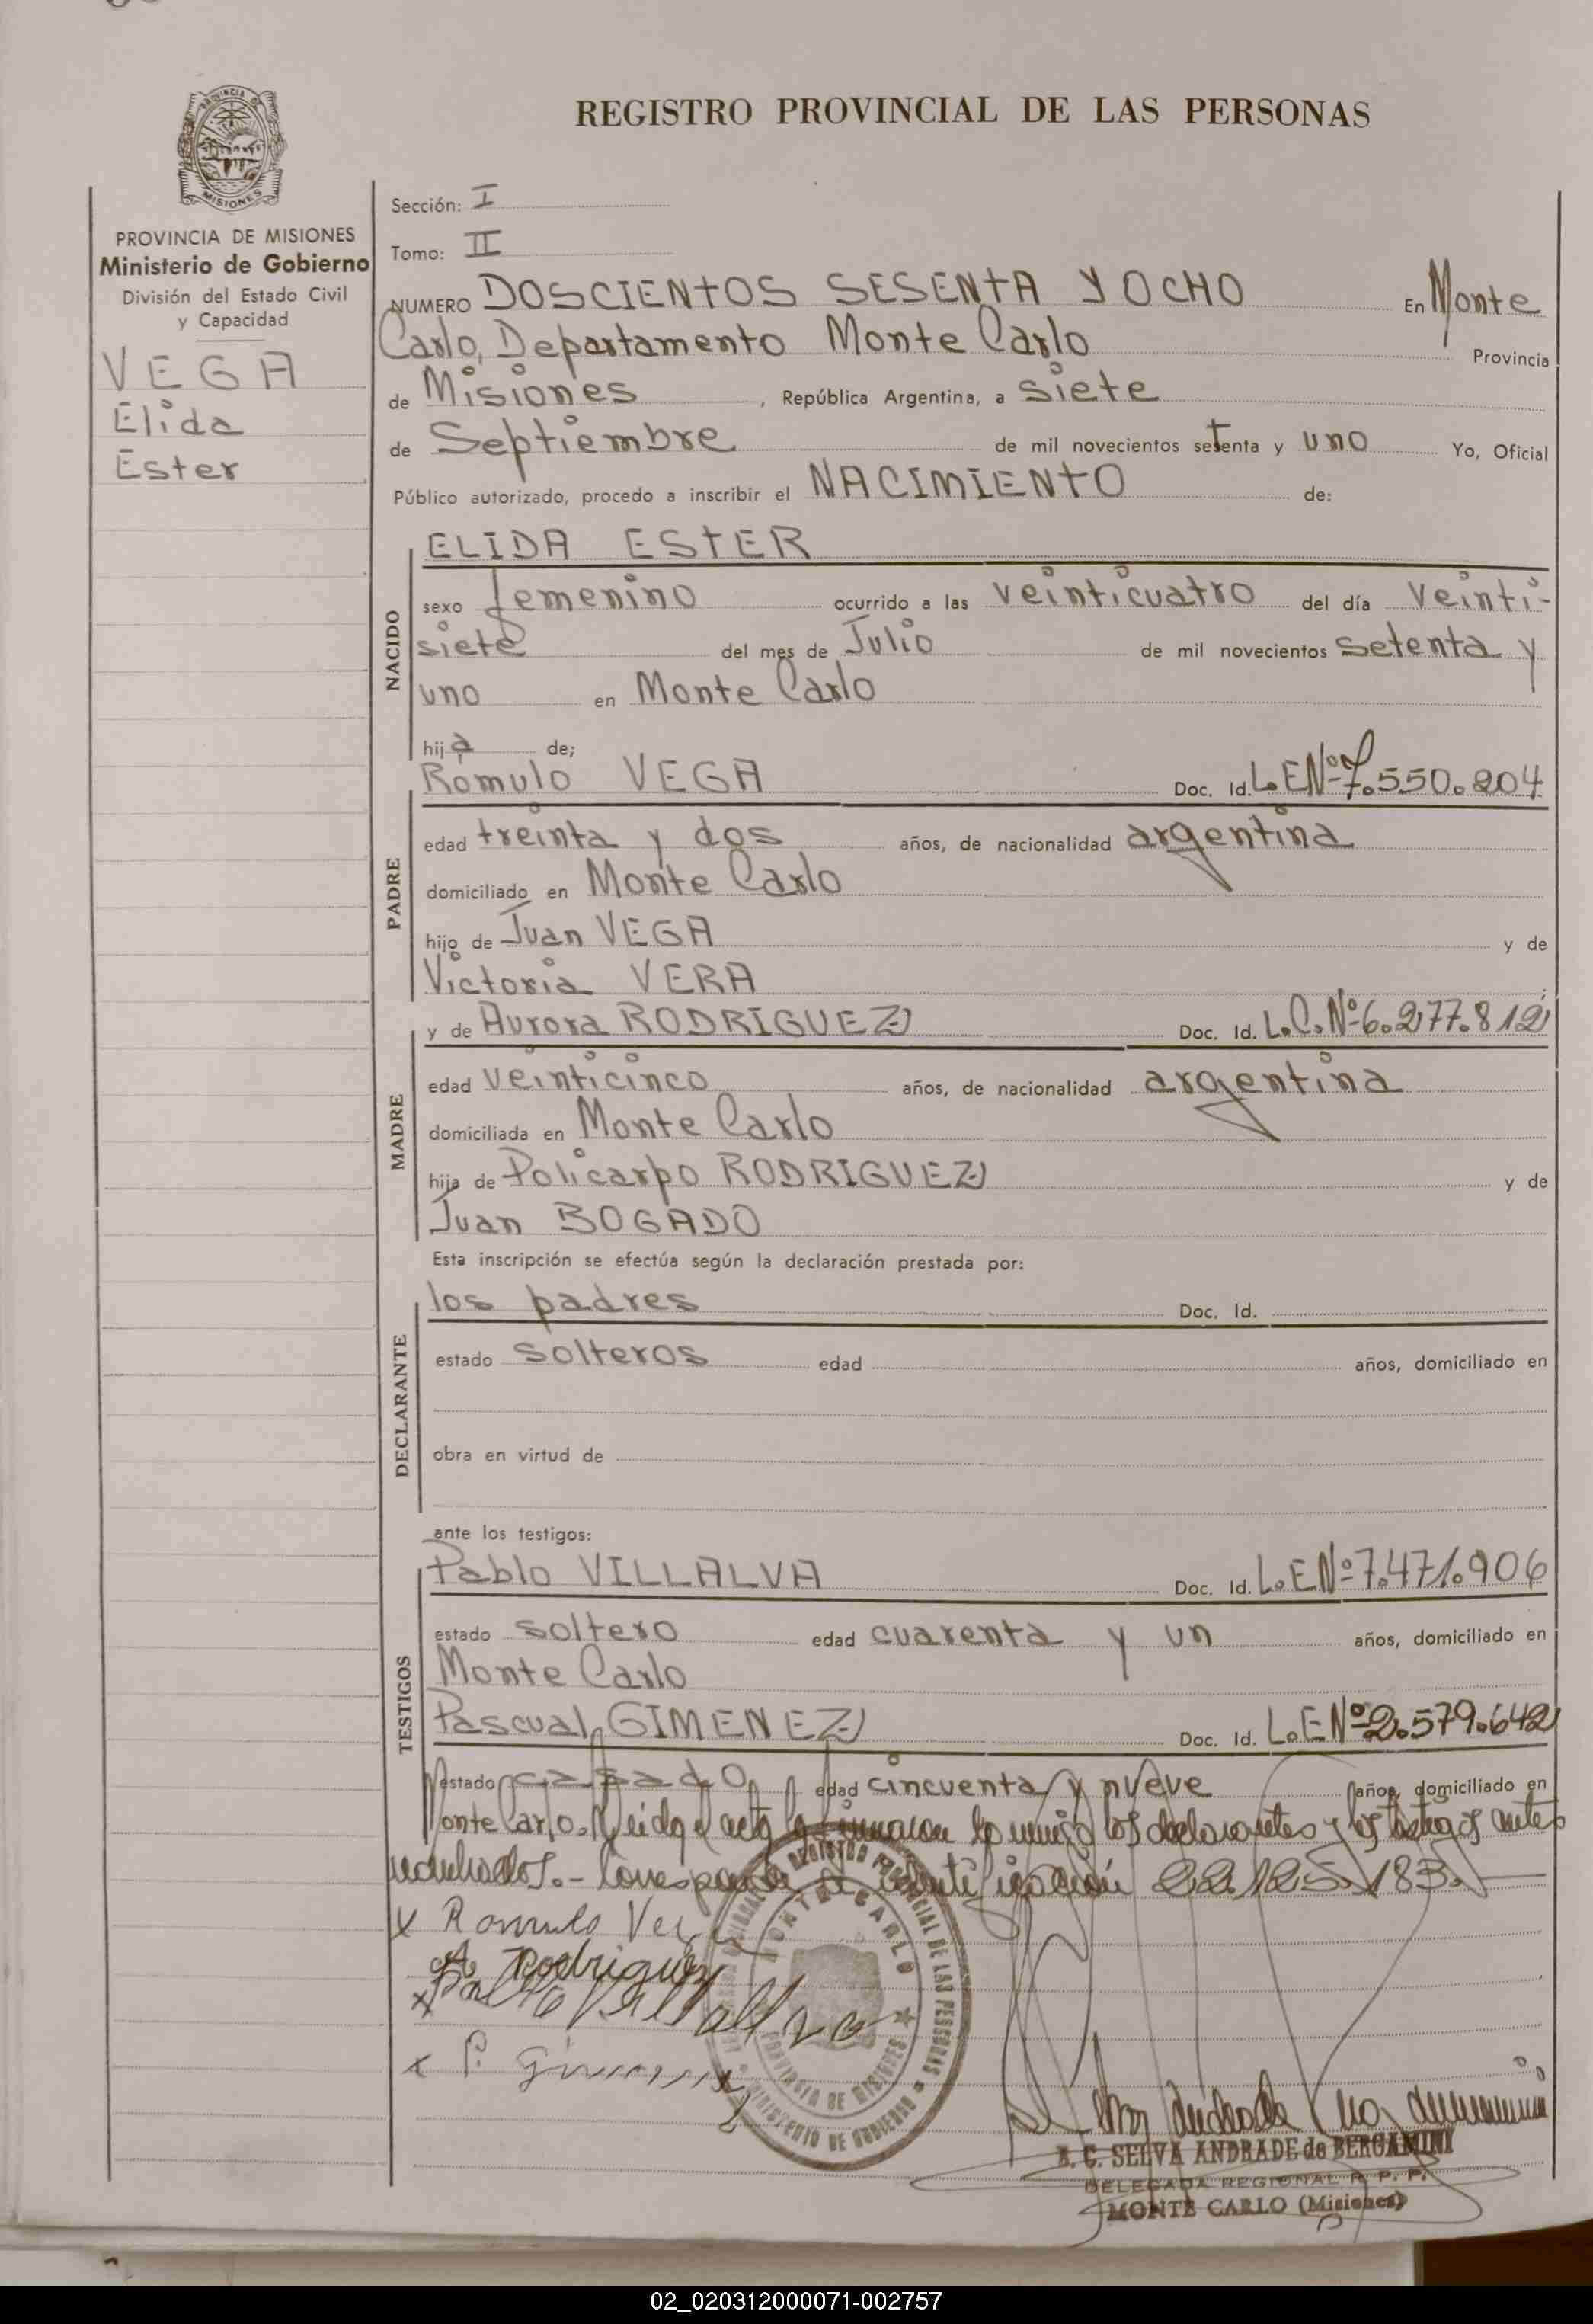 REGISTRO PROVINCIAL DE LAS PERSONAS
PROVINCIA DE MISIONES
Ministerio de Gobierno
División del Estado Civil
y Capacidad
VEGA
Elida
Ester
Sección: I
Tomo: II
NUMERO DOSCIENTOS SESENTA Y OCHO En Monte
Carlo, Departamento Monte Carlo Provincia
de Misiones, República Argentina, a siete
de Septiembre de mil novecientos setenta y uno Yo, Oficial
Público autorizado, procedo a inscribir el NACIMIENTO de:
NACIDO
ELIDA ESTER
sexo femenino ocurrido a las veinticuatro del día veinti-
siete del mes de Julio de mil novecientos setenta y
uno en Monte Carlo
hija de;
PADRE
Rómulo VEGA Doc. Id. L.E Nº 7.550.204
edad treinta y dos años, de nacionalidad argentina
domiciliado en Monte Carlo
hijo de Juan VEGA y de
Victoria VERA
MADRE
y de Aurora RODRIGUEZ Doc. Id. L.C. Nº 6.277.812
edad veinticinco años, de nacionalidad argentina
domiciliada en Monte Carlo
hija de Policarpo RODRIGUEZ y de
Juan BOGADO
Esta inscripción se efectúa según la declaración prestada por:
DECLARANTE
los padres Doc. Id.
estado solteros edad años, domiciliado en
obra en virtud de
ante los testigos:
TESTIGOS
Pablo VILLALVA Doc. Id. L.E Nº 7.471.906
estado soltero edad cuarenta y un años, domiciliado en
Monte Carlo
Pascual GIMENEZ Doc. Id. L.E Nº 2.579.642
estado casado edad cincuenta y nueve años, domiciliado en
Monte Carlo. Leida el acta la firmaron los declarantes y los testigos antes
22.125.183.
x Romulo Vega
A Rodriguez
x Pablo Villalva
x P. Gimenez
REGISTRO PROVINCIAL DE LAS PERSONAS
MONTE CARLO
PROVINCIA DE MISIONES
MINISTERIO DE GOBIERNO
B. C. SELVA ANDRADE de BERGAMINI
DELEGADA REGIONAL R. P. P.
MONTE CARLO (Misiones)
02_020312000071-002757